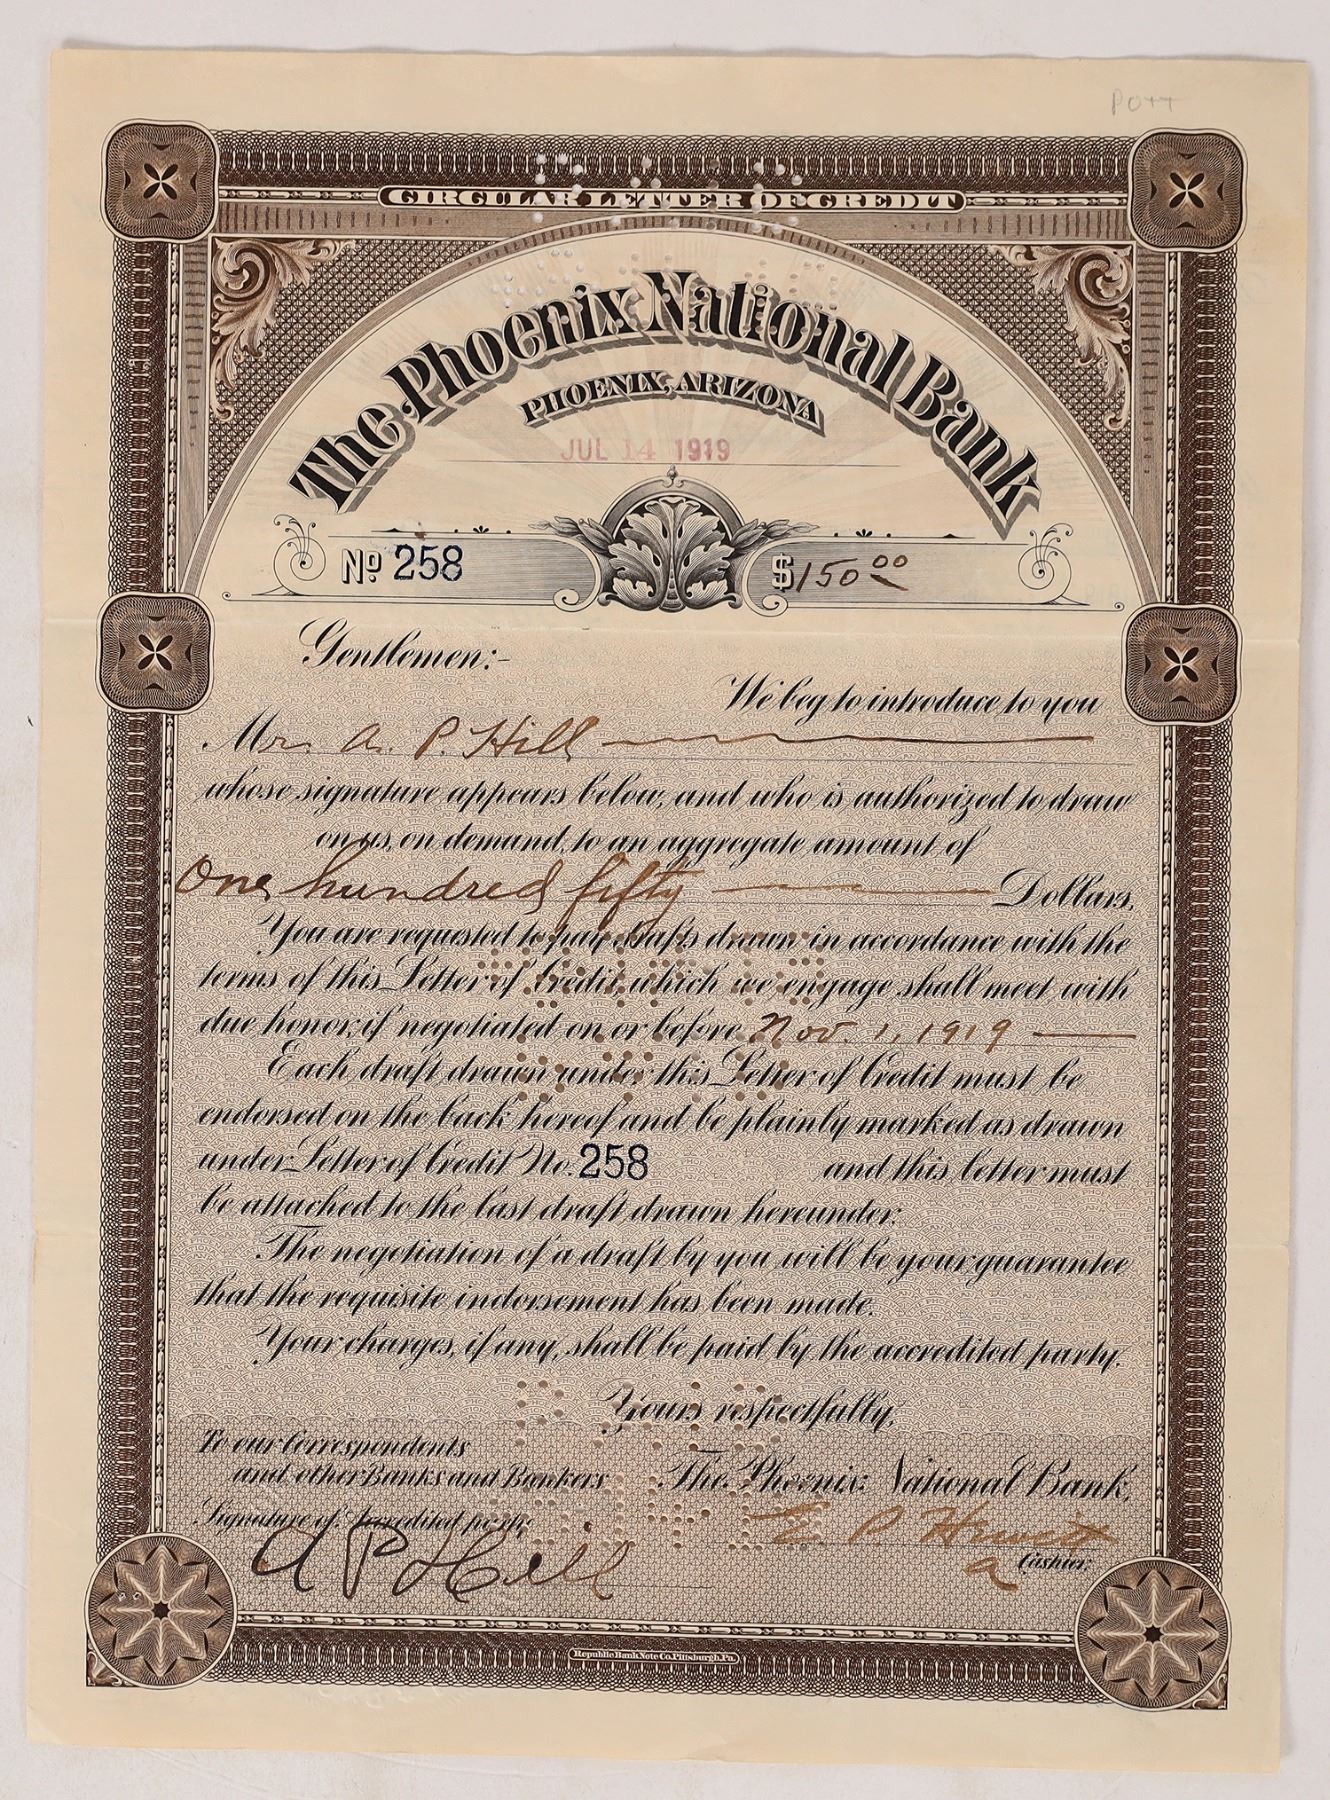 POTT
CIRCULAR LETTER OF CREDIT
The Phoenix National Bank
PHOENIX, ARIZONA
JUL 14 1919
No 258 $150 00
Gentlemen:-
We beg to introduce to you
Mr. A. P. Hill
whose signature appears below, and who is authorized to draw
on us, on demand, to an aggregate amount of
One hundred fifty Dollars.
You are requested to pay drafts drawn in accordance with the
terms of this Letter of Credit, which we engage shall meet with
due honor, if negotiated on or before Nov. 1, 1919
Each draft drawn under this Letter of Credit must be
endorsed on the back hereof and be plainly marked as drawn
under Letter of Credit No. 258 and this letter must
be attached to the last draft drawn hereunder.
The negotiation of a draft by you will be your guarantee
that the requisite indorsement has been made.
Your charges, if any, shall be paid by the accredited party.
Yours respectfully,
To our Correspondents
and other Banks and Bankers
The Phoenix National Bank,
Signature of Accredited party
A P Hill
E P Hewitt
a Cashier.
Republic Bank Note Co. Pittsburgh, Pa.